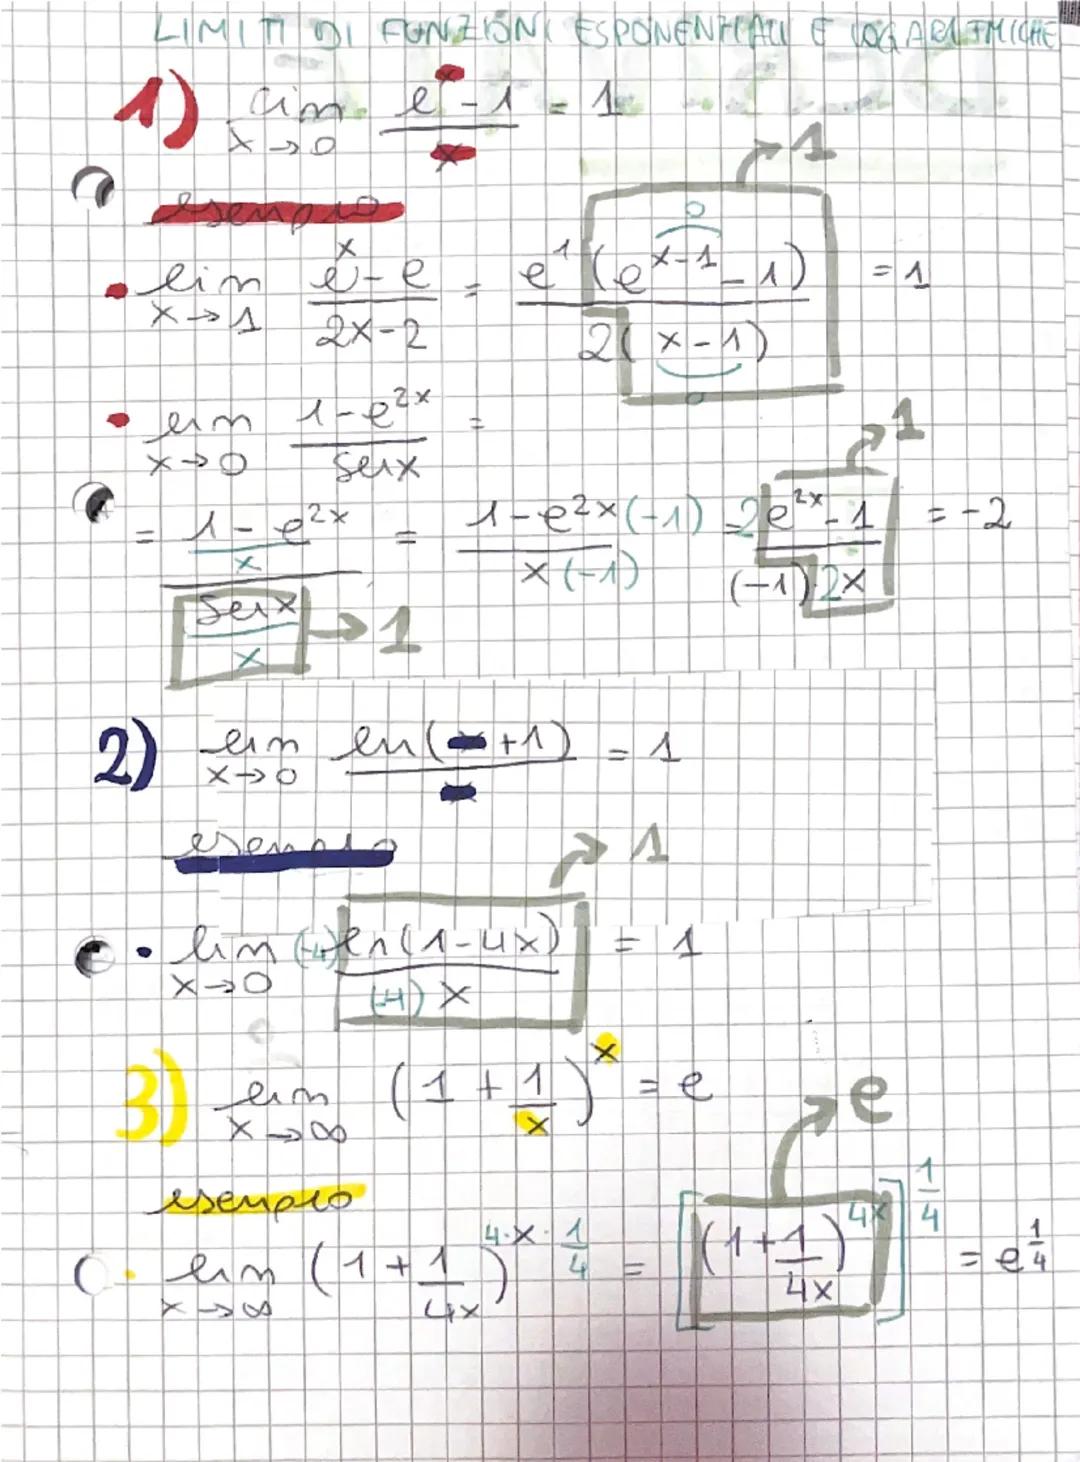 LIMITI DI FUNZIONI ESPONENZIALI E LOGARITMICHE
1) lim x→0 (e^x - 1)/x = 1
esempio
• lim x→1 (e^x - e)/(2x-2) = e^1 (e^(x-1) - 1)/(2(x-1)) = 1 → 1
0
0
• lim x→0 (1-e^2x)/(sen x) =
= ((1-e^2x)/x)/((sen x)/x) → 1 = (1-e^2x (-1))/(x (-1)) = 2 (e^2x - 1)/((-1) 2x) → 1 = -2
2) lim x→0 ln(x+1)/x = 1
esempio
• lim x→0 (-4) ln(1-4x)/((-4) x) → 1 = 1
3) lim x→∞ (1 + 1/x)^x = e
esempio
• lim x→∞ (1 + 1/4x)^(4·x·1/4) = [(1 + 1/4x)^4x]^(1/4) → e = e^(1/4)